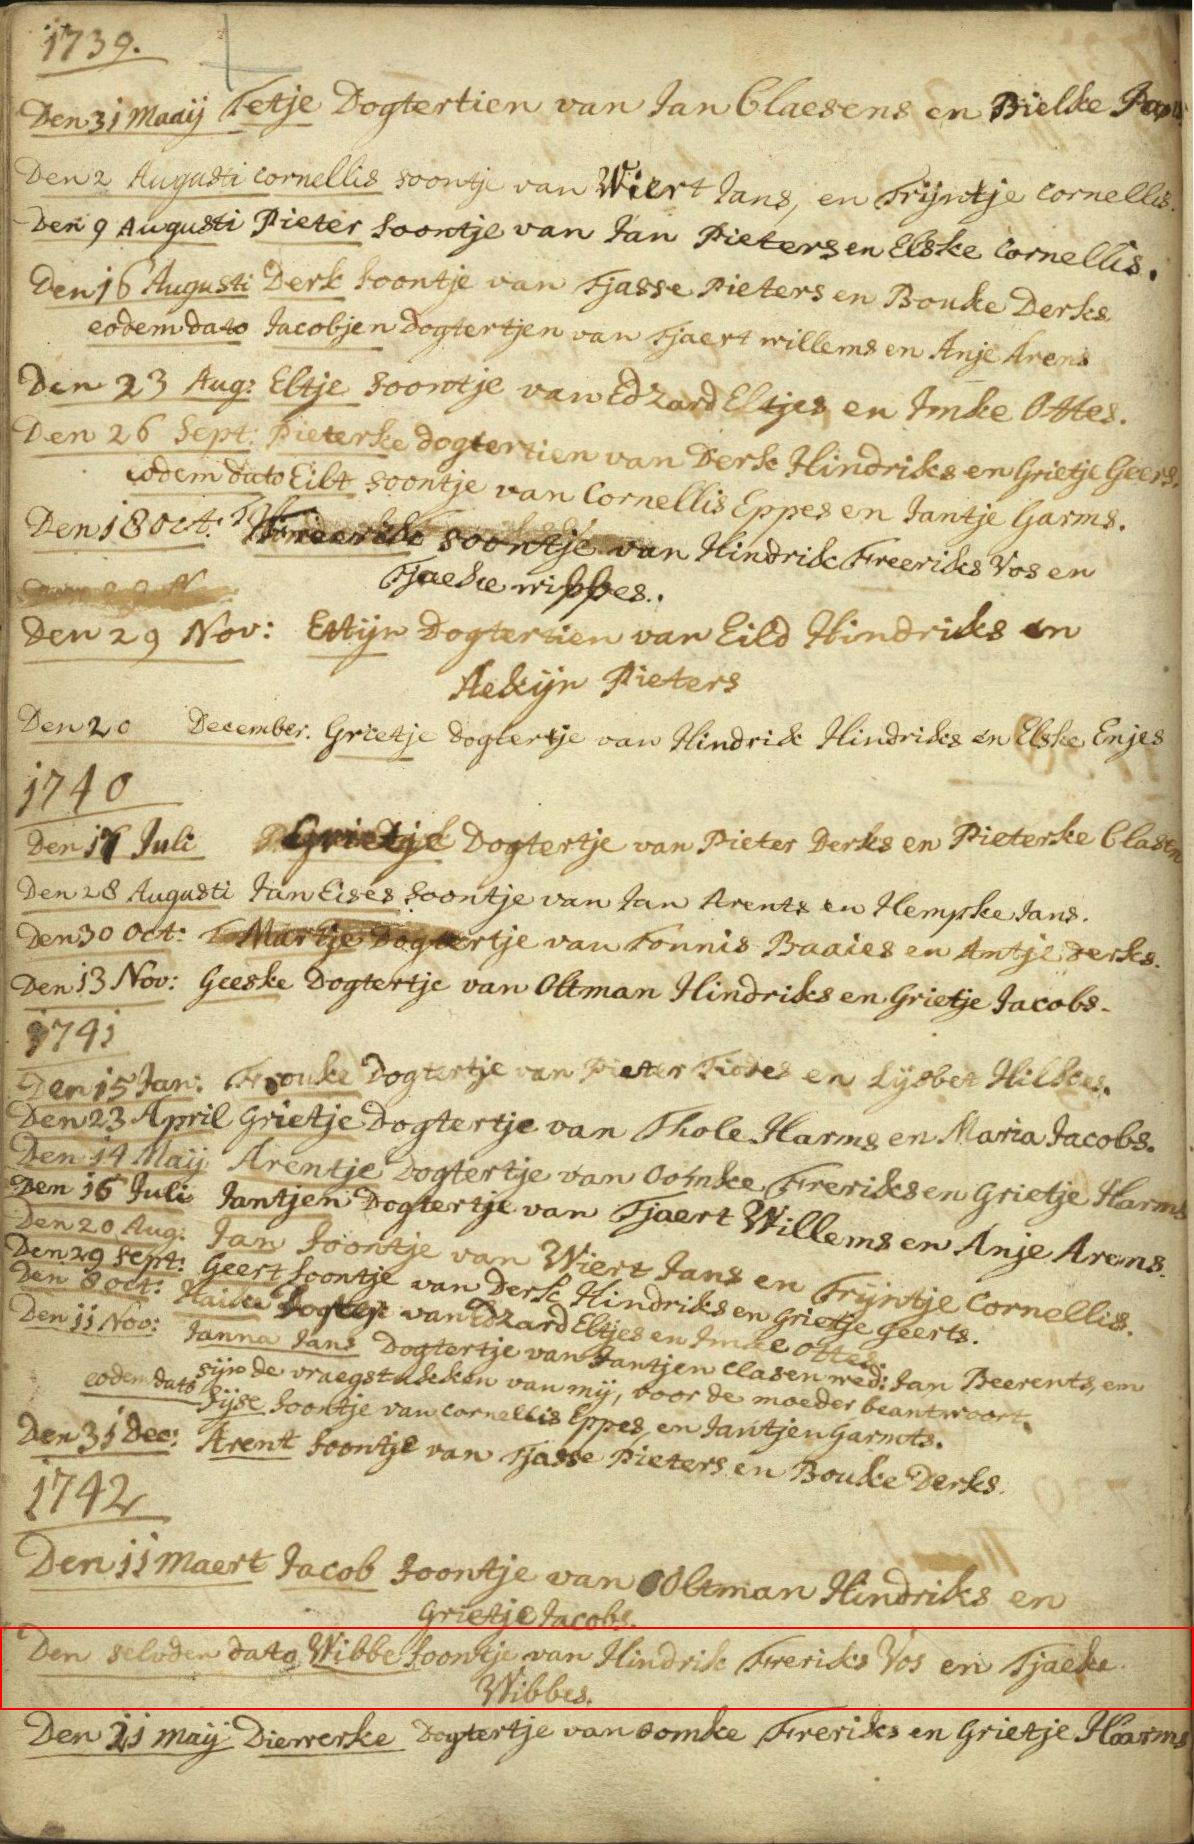 1739.
Den 31 Maaij Tetje Dogtertien van Jan Claesens en Bielke
Den 2 Augusti Cornellis soontje van Wiert Jans, en Trijntje Cornellis.
Den 9 Augusti Pieter Soontje van Jan Pieters en Elske Cornellis.
Den 16 Augusti Derk Soontje van Tjasse Pieters en Bouke Derks
eodem dato Jacobjen Dogtertjen van Tjaert willems en Anje Arens
Den 23 Aug: Eltje Soontje van Edzard Eltjes en Imke Ottes.
Den 26 Sept: Pieterke dogtertien van Derk Hindriks en Grietje Geers.
eodem dato Eilt soontje van Cornellis Eppes en Jantje Garms.
Den 18 Oct: Freerik soontje van Hindrik Freeriks Vos en
Tjaeke wibbes.
Den 29 Nov: Ettijn Dogtertien van Eild Hindriks en
Aekijn Pieters
Den 20 December. Grietje Dogtertje van Hindrik Hindriks en Elske Enjes
1740
Den 17 Juli Grietje Dogtertje van Pieter Derks en Pieterke Clasen
Den 28 Augusti Jan Eises Soontje van Jan Arents en Hempke Jans.
Den 30 Oct: Martje Dogtertje van Tonnis Baaies en Antje Derks.
Den 13 Nov: Geeske Dogtertje van Oltman Hindriks en Grietje Jacobs.
1741
Den 15 Jan: Frouke Dogtertje van Pieter en Lijsbet Hilbes.
Den 23 April Grietje Dogtertje van Thole Harms en Maria Jacobs.
Den 14 Maij Arentje Dogtertje van Oomke Freriks en Grietje Harms
Den 16 Juli Jantjen Dogtertje van Tjaert Willems en Anje Arens.
Den 20 Aug: Jan Soontje van Wiert Jans en Trijntje Cornellis.
Den 29 Sept: Geert Soontje van Derk Hindriks en Grietje Geerts.
Den 8 Oct: Haike Dogter van Edzard Eltjes en Imke Ottes.
Den 11 Nov: Janna Jans Dogtertje van Jantjen Clasen wed: Jan Beerents, en
sijn de vraegstukken van mij, voor de moeder beantwoort.
eodem dato Sijse Soontje van Cornellis Eppes, en Jantjen Garmts.
Den 31 Dec: Arent Soontje van Tjasse Pieters en Bouke Derks.
1742
Den 11 Maert Jacob Soontje van Oltman Hindriks en
Grietje Jacobs.
Den selvden dato Wibbe Soontje van Hindrik Freriks Vos en Tjaeke
Wibbes.
Den 21 Maij Diewerke Dogtertje van Oomke Freriks en Grietje Haarms